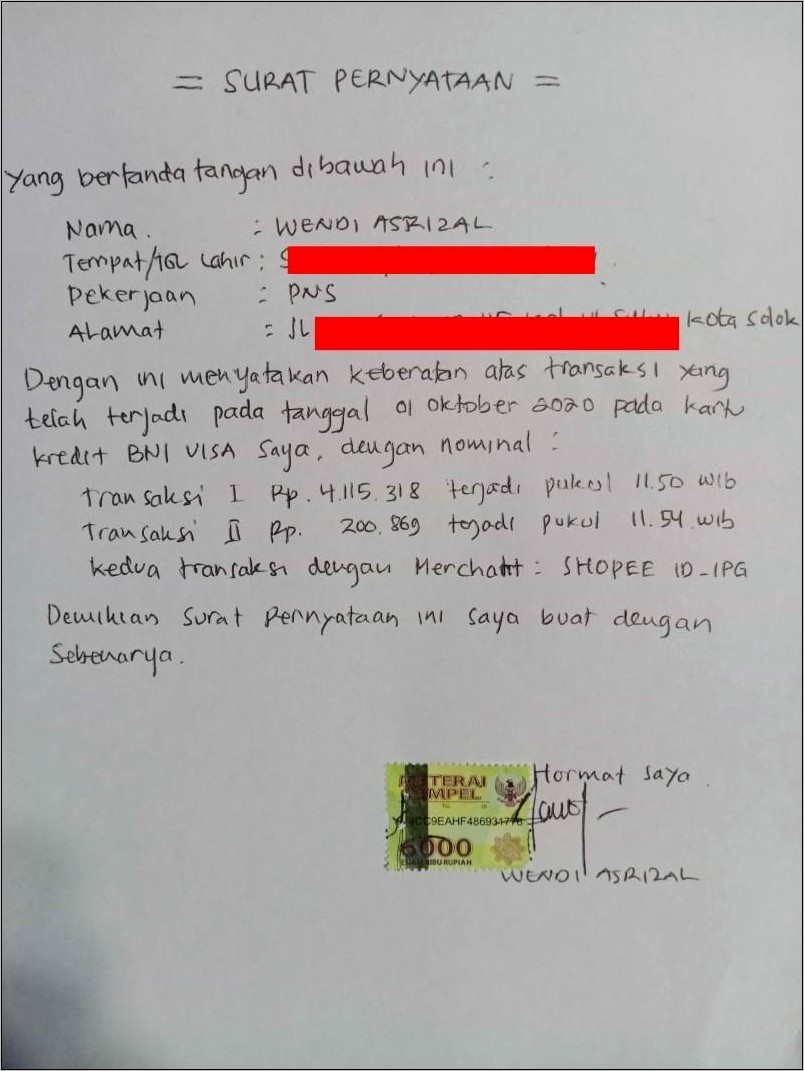 = SURAT PERNYATAAN =
Yang bertanda tangan dibawah ini :
Nama. : WENDI ASRIZAL
Tempat/TGL Lahir : S
Pekerjaan : PNS
ALamat : JL Kota Solok
Dengan ini menyatakan keberatan atas transaksi yang
telah terjadi pada tanggal 01 Oktober 2020 pada kartu
kredit BNI VISA Saya, dengan nominal :
transaksi I Rp. 4.115.318 terjadi pukul 11.50 WIB
Transaksi II Rp. 200.869 terjadi pukul 11.54 WIB
kedua transaksi dengan Merchant : SHOPEE ID_IPG
Demikian Surat Pernyataan ini saya buat dengan
Sebenarya.
Hormat Saya
METERAI
TEMPEL
6000
ENAM RIBU RUPIAH
WENDI ASRIZAL